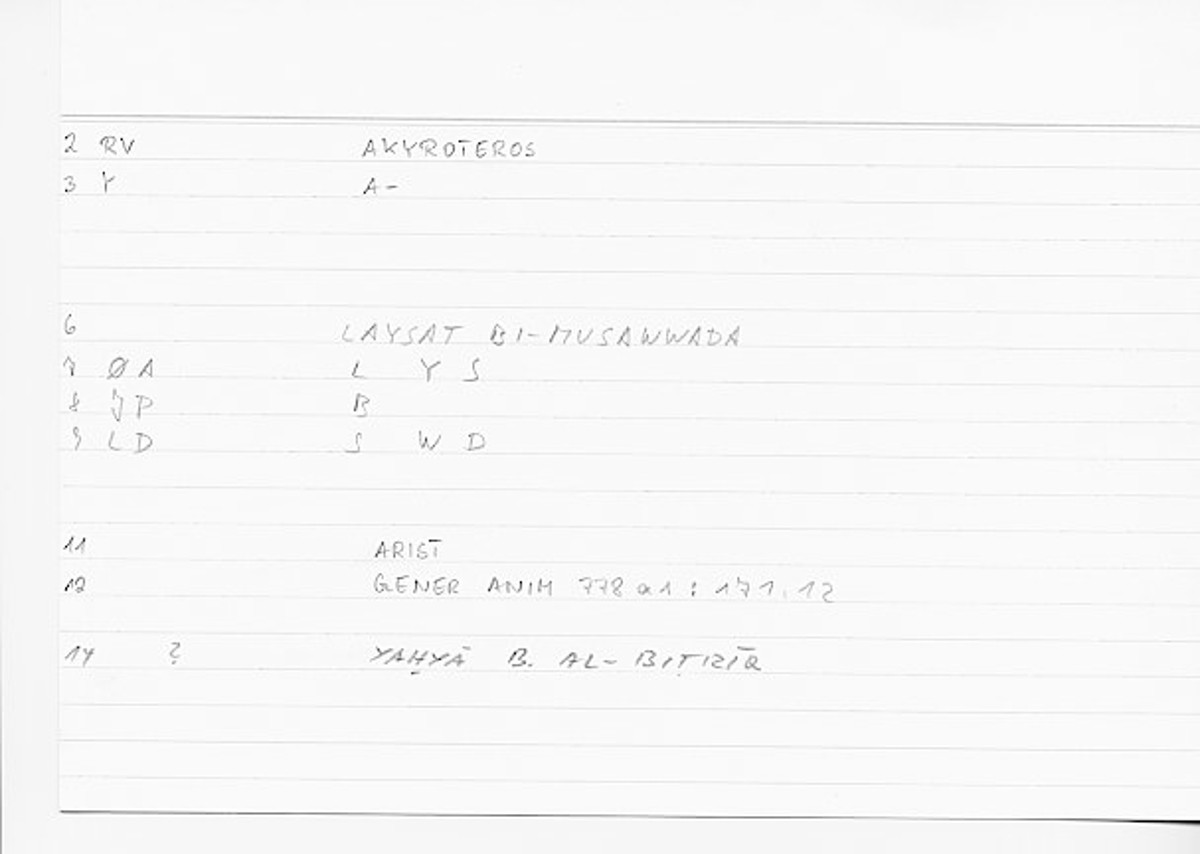 2 RV AKYROTEROS
3 Y A-
6 LAYSAT BI-MUSAWWADA
7 ØA L Y S
8 JP B
9 LD S W D
11 ARIST
12 GENER ANIM 778 a 1 : 171.12
14 ? YAḤYĀ B. AL-BIṬRĪQ